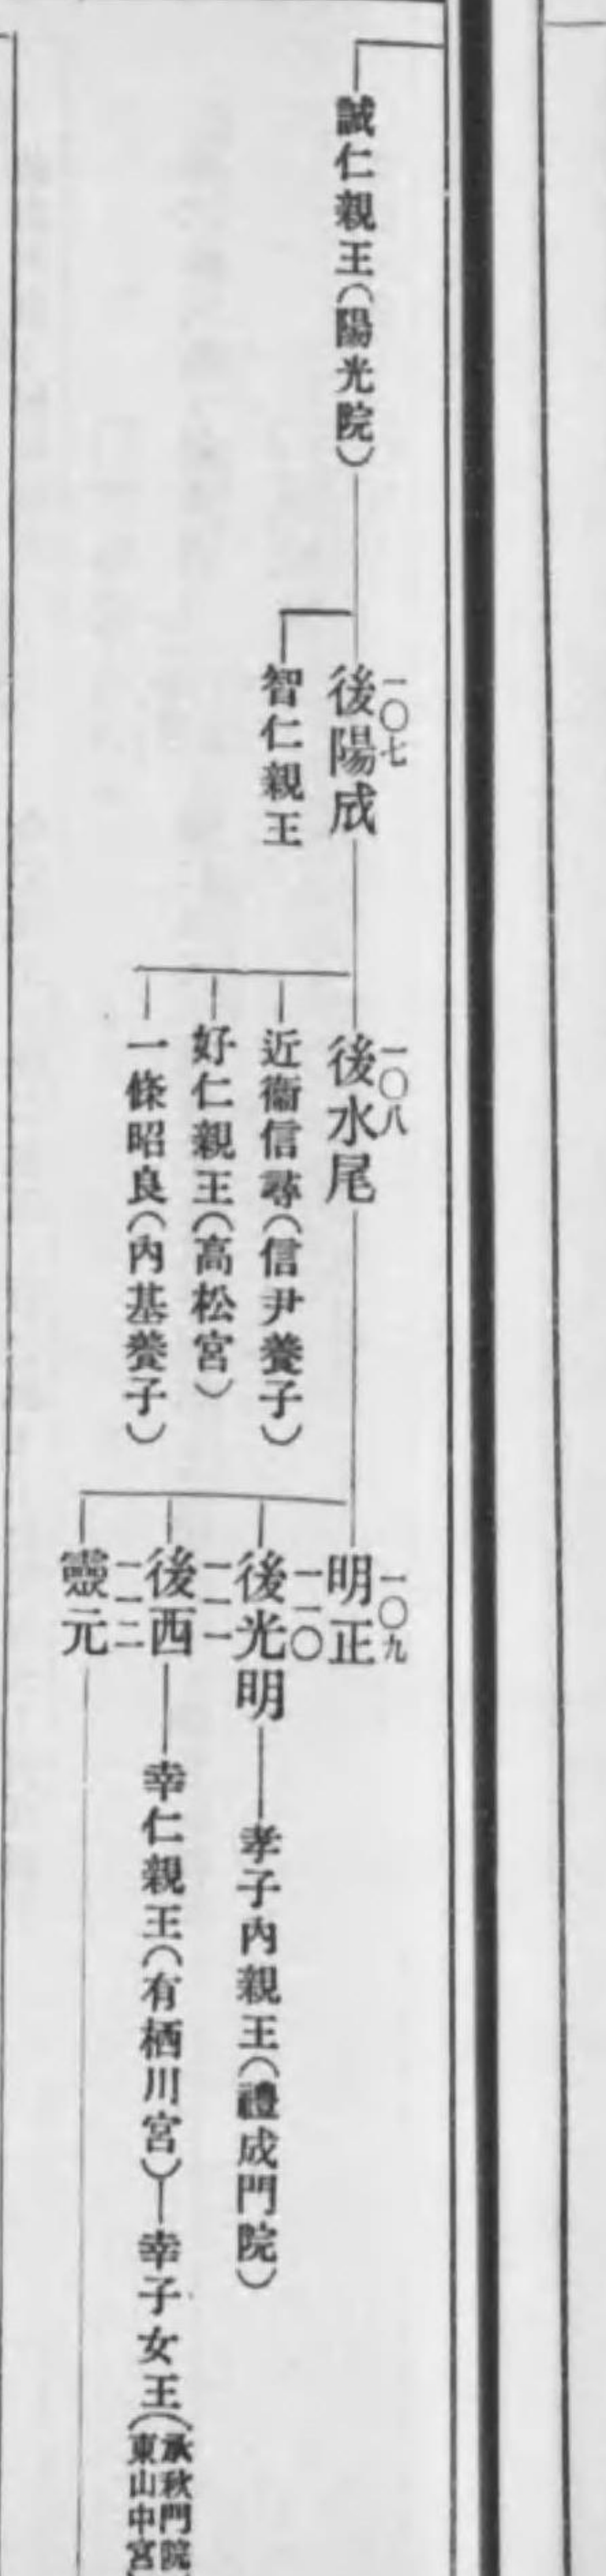 誠仁親王(陽光院)
一〇七
後陽成
智仁親王
一〇八
後水尾
近衞信尋(信尹養子)
好仁親王(高松宮)
一條昭良(內基養子)
一〇九
明正
一一〇
後光明
孝子內親王(禮成門院)
一一一
後西
幸仁親王(有栖川宮)
幸子女王(承秋門院
東山中宮
一一二
靈元